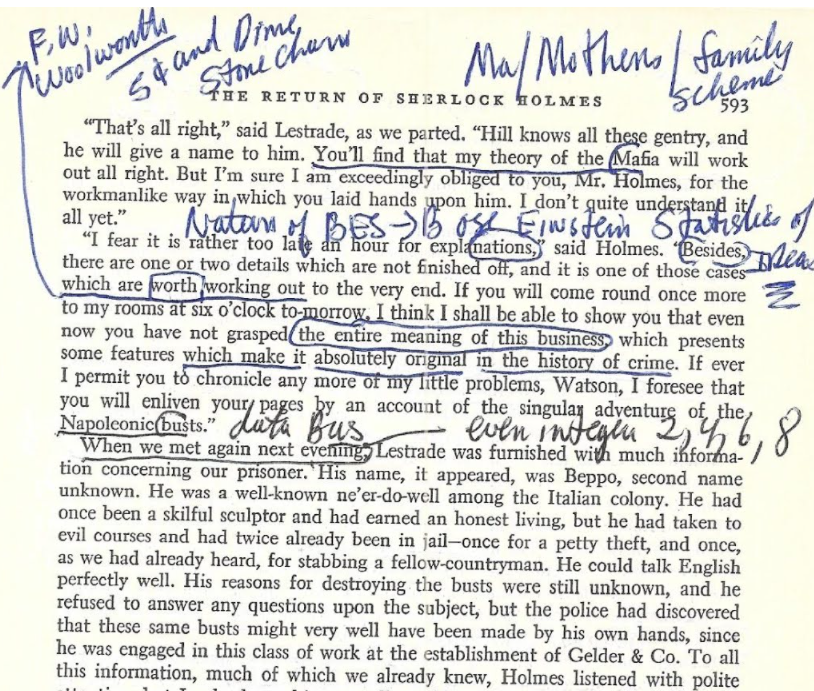 F.W.
Woolworth
5¢ and Dime
Store Chain
Ma/Mothers/family
scheme
THE RETURN OF SHERLOCK HOLMES
593
"That's all right," said Lestrade, as we parted. "Hill knows all these gentry, and
he will give a name to him. You'll find that my theory of the Mafia will work
out all right. But I'm sure I am exceedingly obliged to you, Mr. Holmes, for the
workmanlike way in which you laid hands upon him. I don't quite understand it
all yet."
Nature of BES→Bose Einstein Statistics of
Ideas
"I fear it is rather too late an hour for explanations," said Holmes. "Besides,
there are one or two details which are not finished off, and it is one of those cases
which are worth working out to the very end. If you will come round once more
to my rooms at six o'clock to-morrow, I think I shall be able to show you that even
now you have not grasped the entire meaning of this business, which presents
some features which make it absolutely original in the history of crime. If ever
I permit you to chronicle any more of my little problems, Watson, I foresee that
you will enliven your pages by an account of the singular adventure of the
Napoleonic busts."
data Bus — even integer 2, 4, 6, 8
When we met again next evening, Lestrade was furnished with much informa-
tion concerning our prisoner. His name, it appeared, was Beppo, second name
unknown. He was a well-known ne'er-do-well among the Italian colony. He had
once been a skilful sculptor and had earned an honest living, but he had taken to
evil courses and had twice already been in jail—once for a petty theft, and once,
as we had already heard, for stabbing a fellow-countryman. He could talk English
perfectly well. His reasons for destroying the busts were still unknown, and he
refused to answer any questions upon the subject, but the police had discovered
that these same busts might very well have been made by his own hands, since
he was engaged in this class of work at the establishment of Gelder & Co. To all
this information, much of which we already knew, Holmes listened with polite